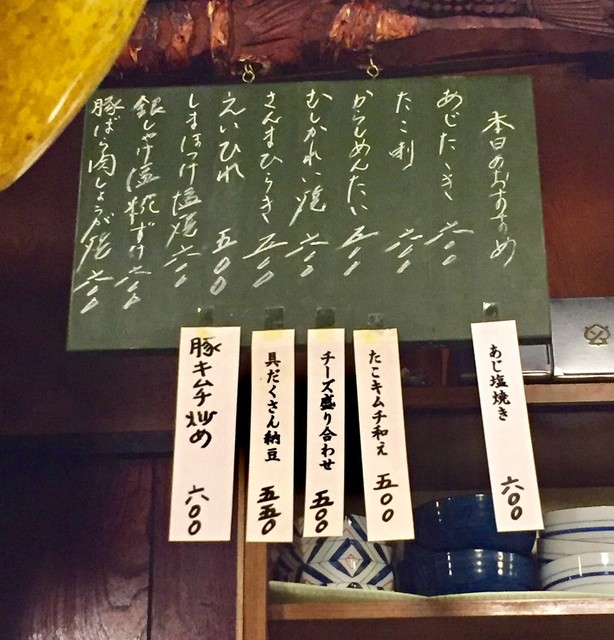 本日のおすすめ
あじたたき 六〇〇
たこ刺 六〇〇
からしめんたい 五〇〇
むしかれい焼 六〇〇
さんまひらき 五五〇
えいひれ 五〇〇
しまほっけ塩焼 六〇〇
銀しゃけ塩糀づけ 六〇〇
豚ばら肉しょうが焼 六〇〇
あじ塩焼き 六〇〇
たこキムチ和え 五〇〇
チーズ盛り合わせ 五〇〇
具だくさん納豆 五五〇
豚キムチ炒め 六〇〇